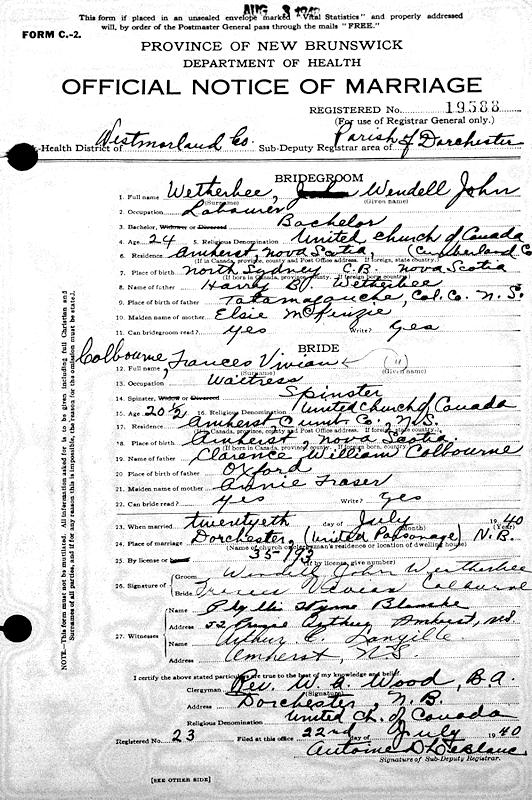 AUG 3 1940
This form if placed in an unsealed envelope marked "Vital Statistics" and properly addressed
will, by order of the Postmaster General pass through the mails "FREE."
FORM C.-2.
PROVINCE OF NEW BRUNSWICK
DEPARTMENT OF HEALTH
OFFICIAL NOTICE OF MARRIAGE
REGISTERED No. 19588
(For use of Registrar General only.)
Health District of Westmorland Co. Sub-Deputy Registrar area of Parish of Dorchester
BRIDEGROOM
1. Full name Wetherbee, Wendell John
(Surname) (Given name)
2. Occupation Labourer
3. Bachelor, Widower or Divorced Bachelor
4. Age 24 5. Religious Denomination United Church of Canada
6. Residence Amherst Nova Scotia, (Cumberland Co
(If in Canada, province, county and Post Office address. If foreign, state country.)
7. Place of birth North Sydney C.B. Nova Scotia
(If born in Canada, province, county. If foreign born country)
8. Name of father Harry B. Wetherbee
9. Place of birth of father Tatamagouche, Col. Co. N.S.
10. Maiden name of mother Elsie McKenzie
11. Can bridegroom read? Yes Write? Yes
BRIDE
12. Full name Colbourne, Frances Vivian (")
(Surname) (Given name)
13. Occupation Waitress
14. Spinster, Widow or Divorced Spinster
15. Age 20½ 16. Religious Denomination United Church of Canada
17. Residence Amherst Cumb. Co. N.S.
(If in Canada, province, county and Post Office address. If foreign, state country.)
18. Place of birth Amherst, Nova Scotia
(If born in Canada, province, county. If foreign born country)
19. Name of father Clarance William Colbourne
20. Place of birth of father Oxford
21. Maiden name of mother Annie Fraser
22. Can bride read? Yes Write? Yes
23. When married twentyeth day of July 1940
(Month)
24. Place of marriage Dorchester, (United Parsonage) N.B.
(Name of church or clergyman's residence or location of dwelling house)
25. By license or banns 35-193
(If by license, give number)
26. Signature of Groom Wendell John Wetherbee
Bride Frances Vivian Colburne
27. Witnesses
Name Phyllis
Address 52 Amherst, N.S.
Name Arthur C.
Address Amherst, N.S.
I certify the above stated particulars are true to the best of my knowledge and belief.
Clergyman Rev. W. A. Wood, B.A.
(Signature)
Address Dorchester, N.B.
Religious Denomination United Ch. of Canada
Registered No. 23 Filed at this office 22nd day of July 1940
Antoine D LeBlanc
Signature of Sub-Deputy Registrar.
[SEE OTHER SIDE]
NOTE.—This form must not be mutilated. All information asked for is to be given including full Christian and
Surnames of all parties, and if for any reason this is impossible, the reason for the omission must be stated.